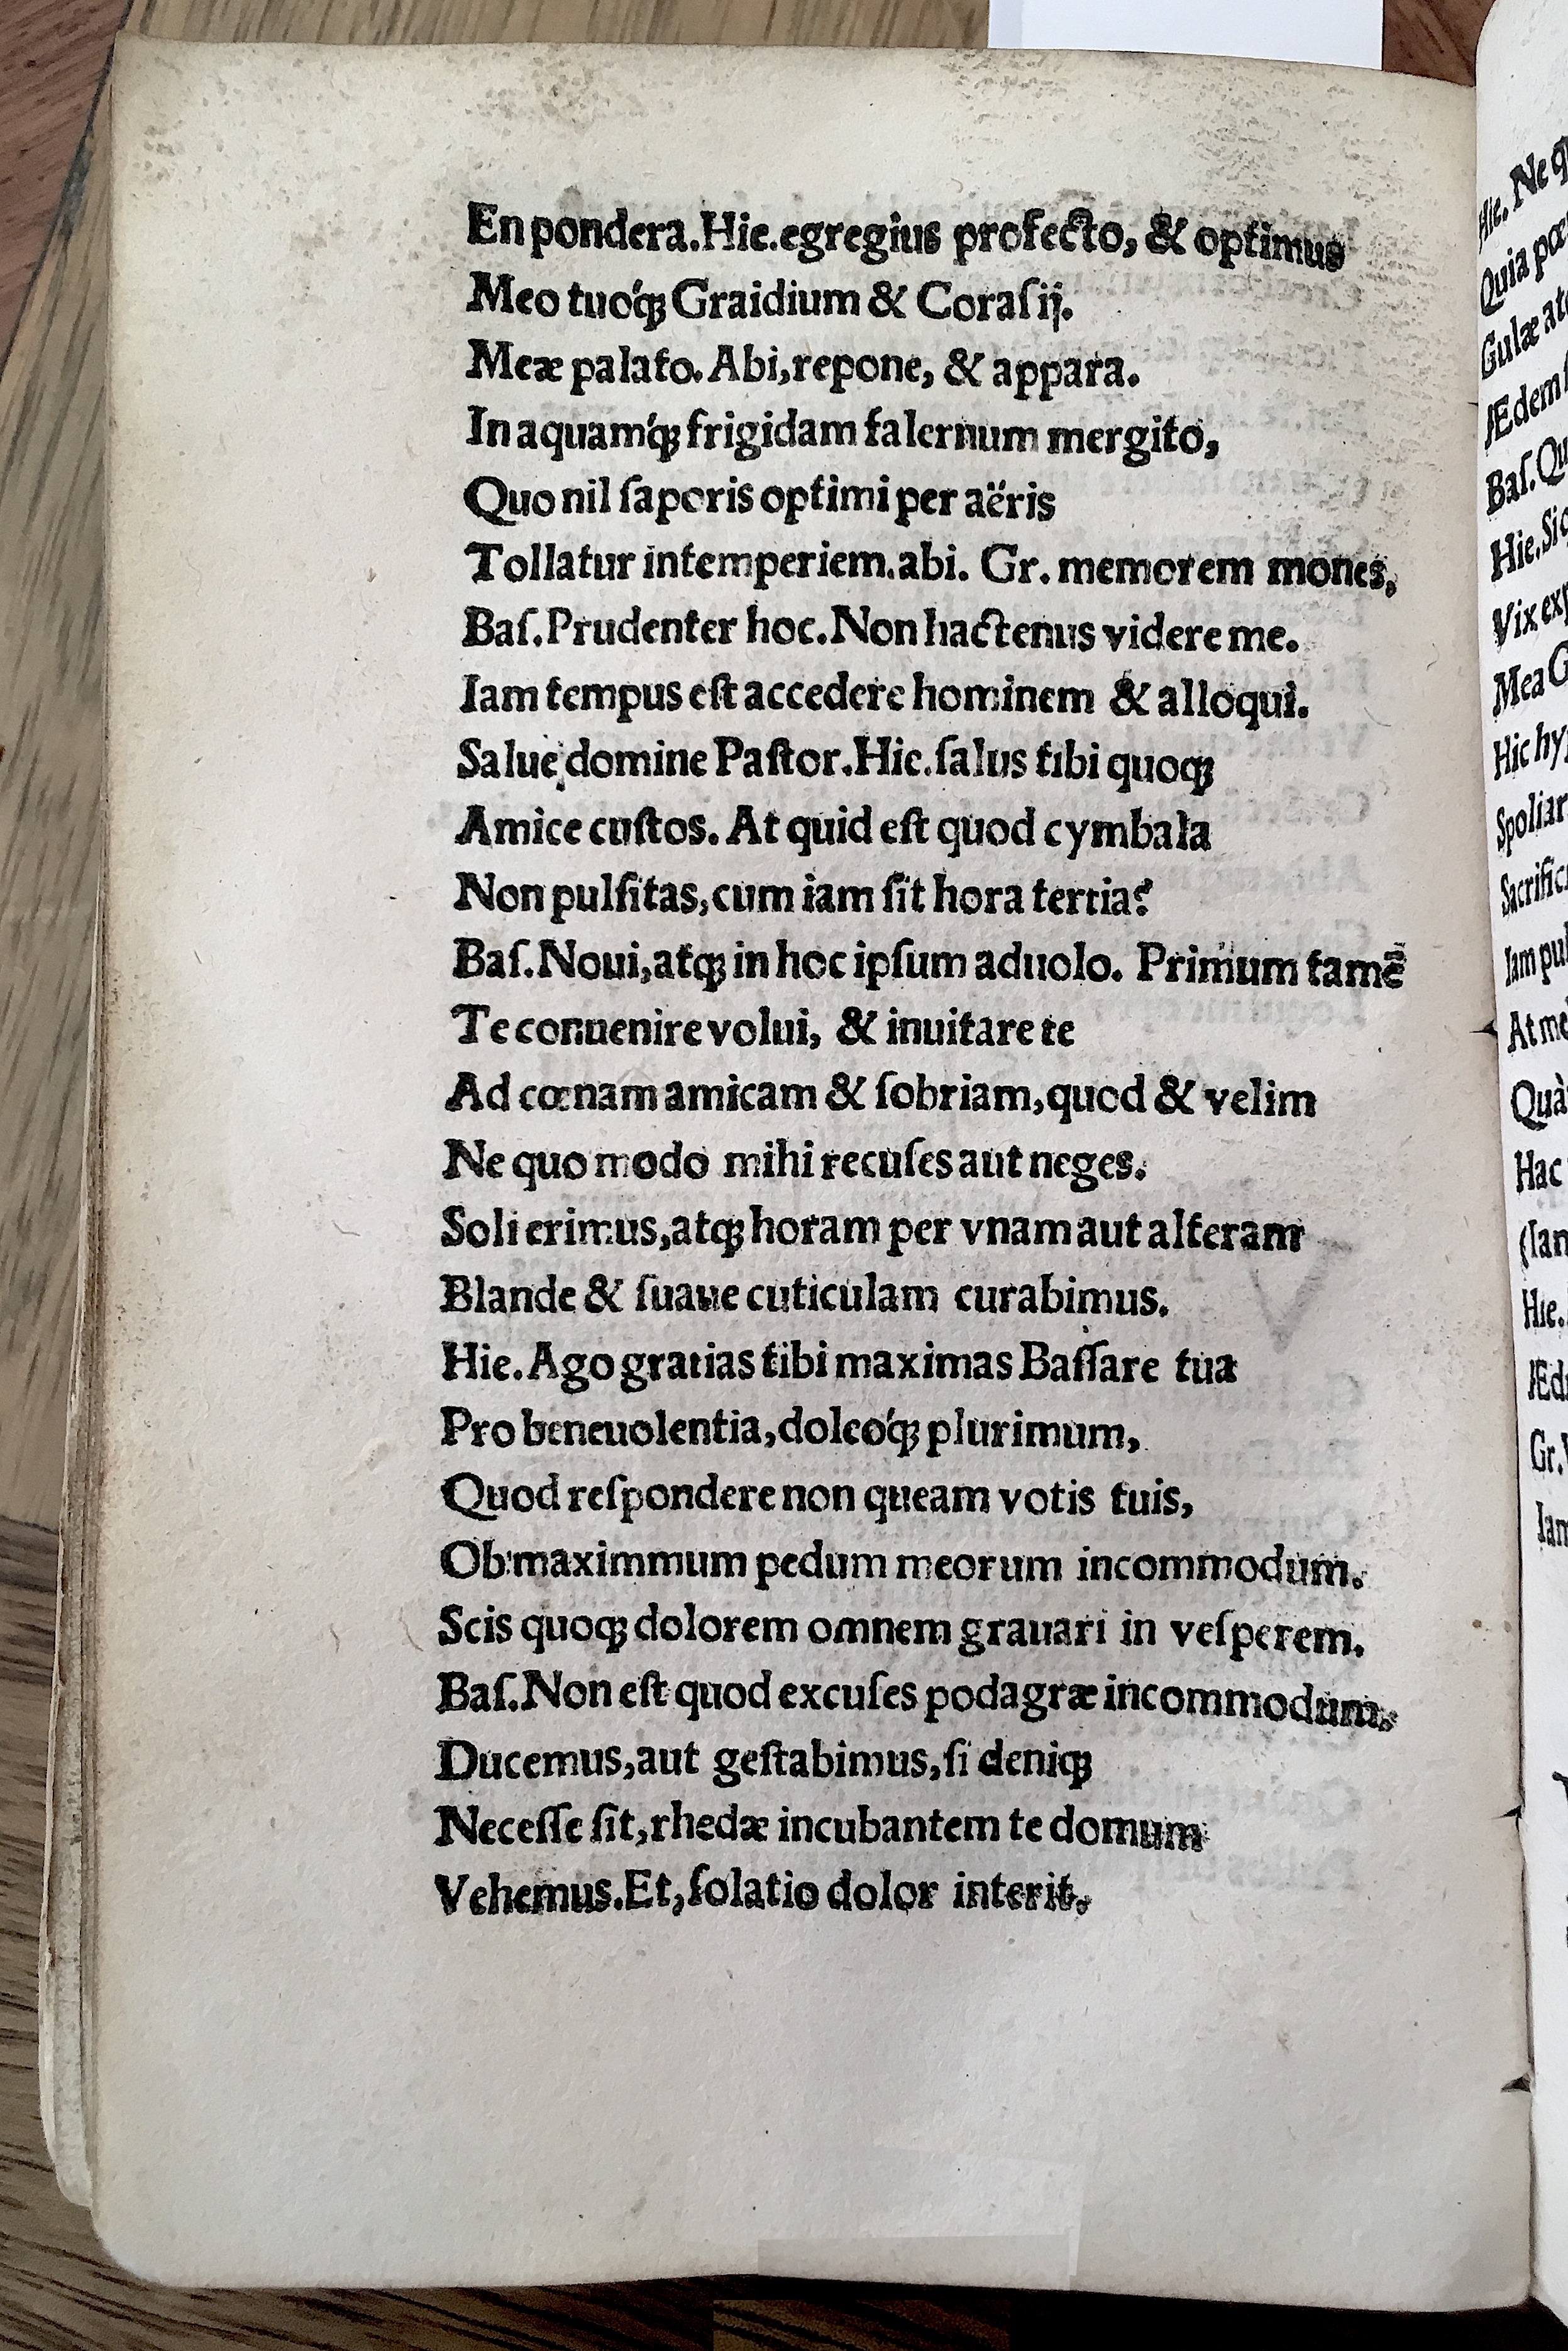 En pondera. Hie. egregius profecto, & optimus
Meo tuoq́ꝫ Graidium & Coraſij.
Meæ palato. Abi, repone, & appara.
In aquamq́ꝫ frigidam falernum mergito,
Quo nil ſaporis optimi per aëris
Tollatur intemperiem. abi. Gr. memorem mones,
Baſ. Prudenter hoc. Non hactenus videre me.
Iam tempus eſt accedere hominem & alloqui.
Salue domine Paſtor. Hie. ſalus tibi quoqꝫ
Amice cuſtos. At quid eſt quod cymbala
Non pulſitas, cum iam ſit hora tertia?
Baſ. Noui, atqꝫ in hoc ipſum aduolo. Primum tamē
Te conuenire volui, & inuitare te
Ad cœnam amicam & ſobriam, quod & velim
Ne quo modo mihi recuſes aut neges.
Soli erimus, atqꝫ horam per vnam aut alteram
Blande & ſuaue cuticulam curabimus.
Hie. Ago gratias tibi maximas Baſſare tua
Pro beneuolentia, doleoq́ꝫ plurimum,
Quod reſpondere non queam votis tuis,
Ob maximmum pedum meorum incommodum.
Scis quoqꝫ dolorem omnem grauari in veſperem.
Baſ. Non eſt quod excuſes podagræ incommodum.
Ducemus, aut geſtabimus, ſi deniqꝫ
Neceſſe ſit, rhedæ incubantem te domum
Vehemus. Et, ſolatio dolor interit.
Hie. Ne
Quia
Gulæ
Ædem
Baſ.
Hie.
Vix
Mea
Hic
Iam
At
Quà
Hac
(Iam
Hie.
Gr.
Iam